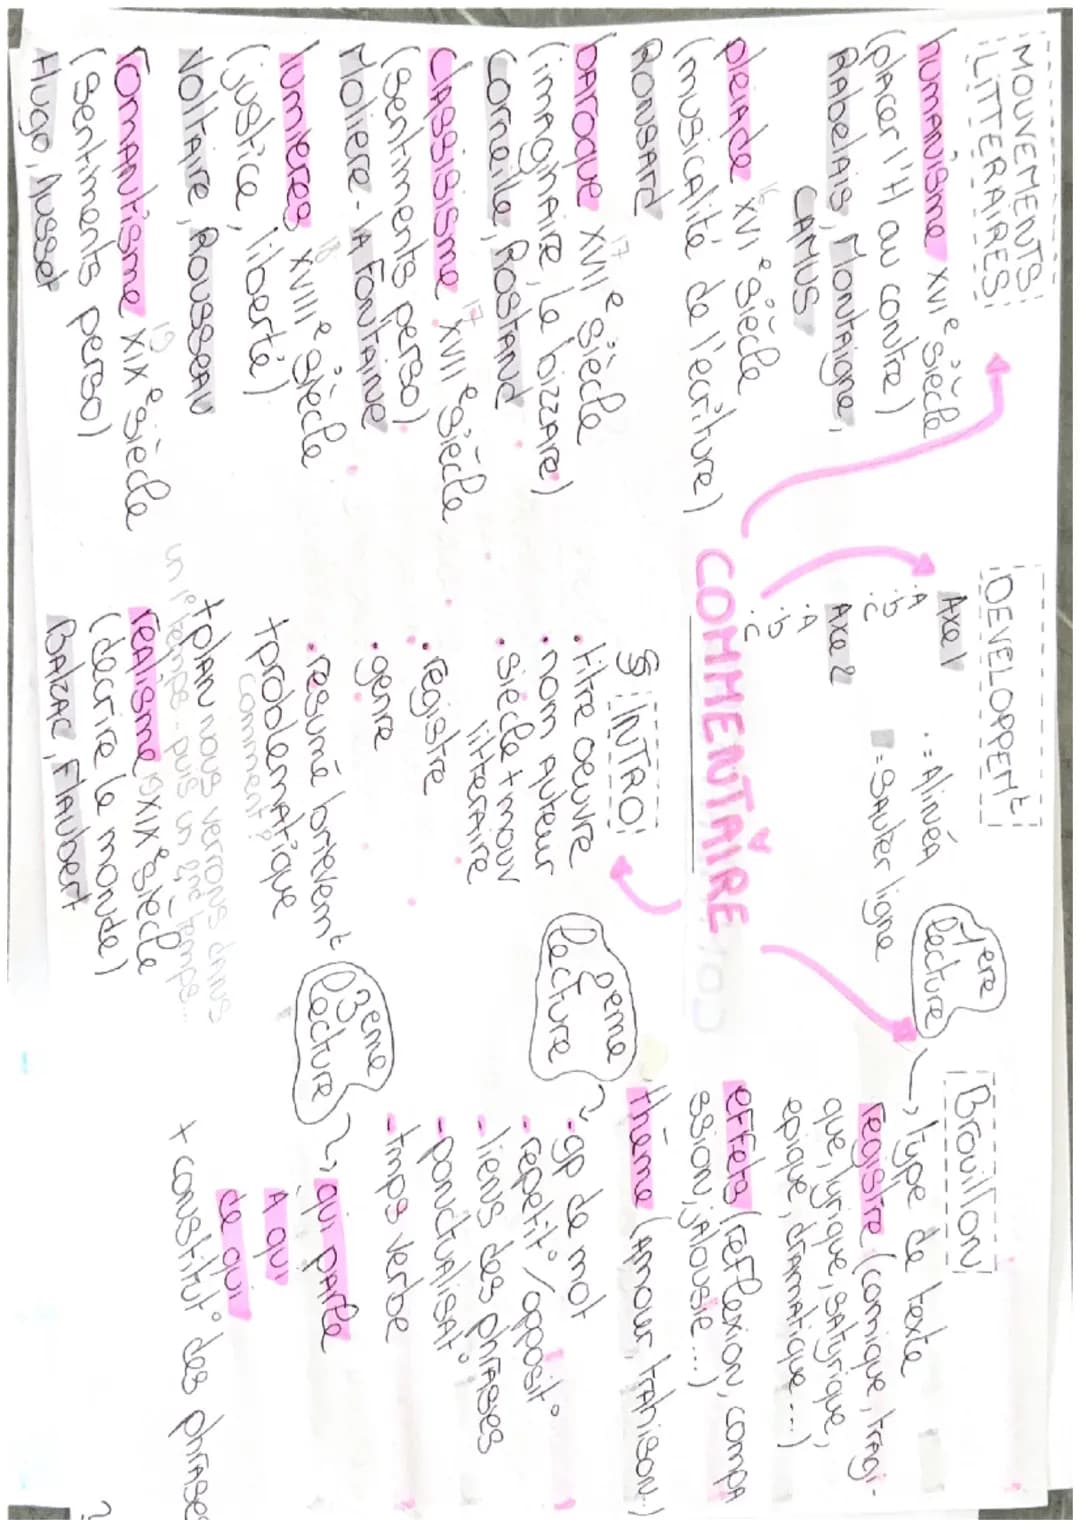 MOUVEMENTS
LITTERAIRES
humanisme XVIe siècle
(placer l'H au centre)
Rabelais, Montaigne,
CAMUS
pleiade XVIe siècle
16
(musicalité de l'écriture)
RONSARD
baroque XVIIe siècle
17
(imaginaire, le bizzaire)
Corneille, Rostand
classisisme XVIIe siècle
17
(sentiments perso)
Moliere - la Fontaine
lumieres XVIIIe siècle
18
(justice, liberté)
Voltaire, Rousseau
romantisme XIXe siècle
19
(sentiments perso)
Hugo, Musset
DEVELOPPEMt
Axe 1
.A
.b
.c
Axe 2
.A
.b
.c
. = Alinéa
= sauter ligne
COMMENTAIRE
§ INTRO
• titre oeuvre
• nom auteur
• siècle + mouv
litteraire
• registre
• genre
• resumé brievemt
+ problematique
comment?
+ plan nous verrons dans
un 1e temps.. puis un 2ne temps...
realisme XIXe siècle
19
(decrire le monde)
Balzac, Flaubert
Brouillon
1ere
lecture
type de texte
registre (comique, tragi-
que, lyrique, satyrique,
epique, dramatique...)
effets (reflexion, compa
ssion, jalousie...)
thème (amour, trahison..)
2eme
lecture
- gp de mot
- repetit°/opposit°
- liens des phrases
- ponctualisat°
- tmps verbe
3eme
lecture
qui parle
A qui
de qui
+ constitut° des phrases
?